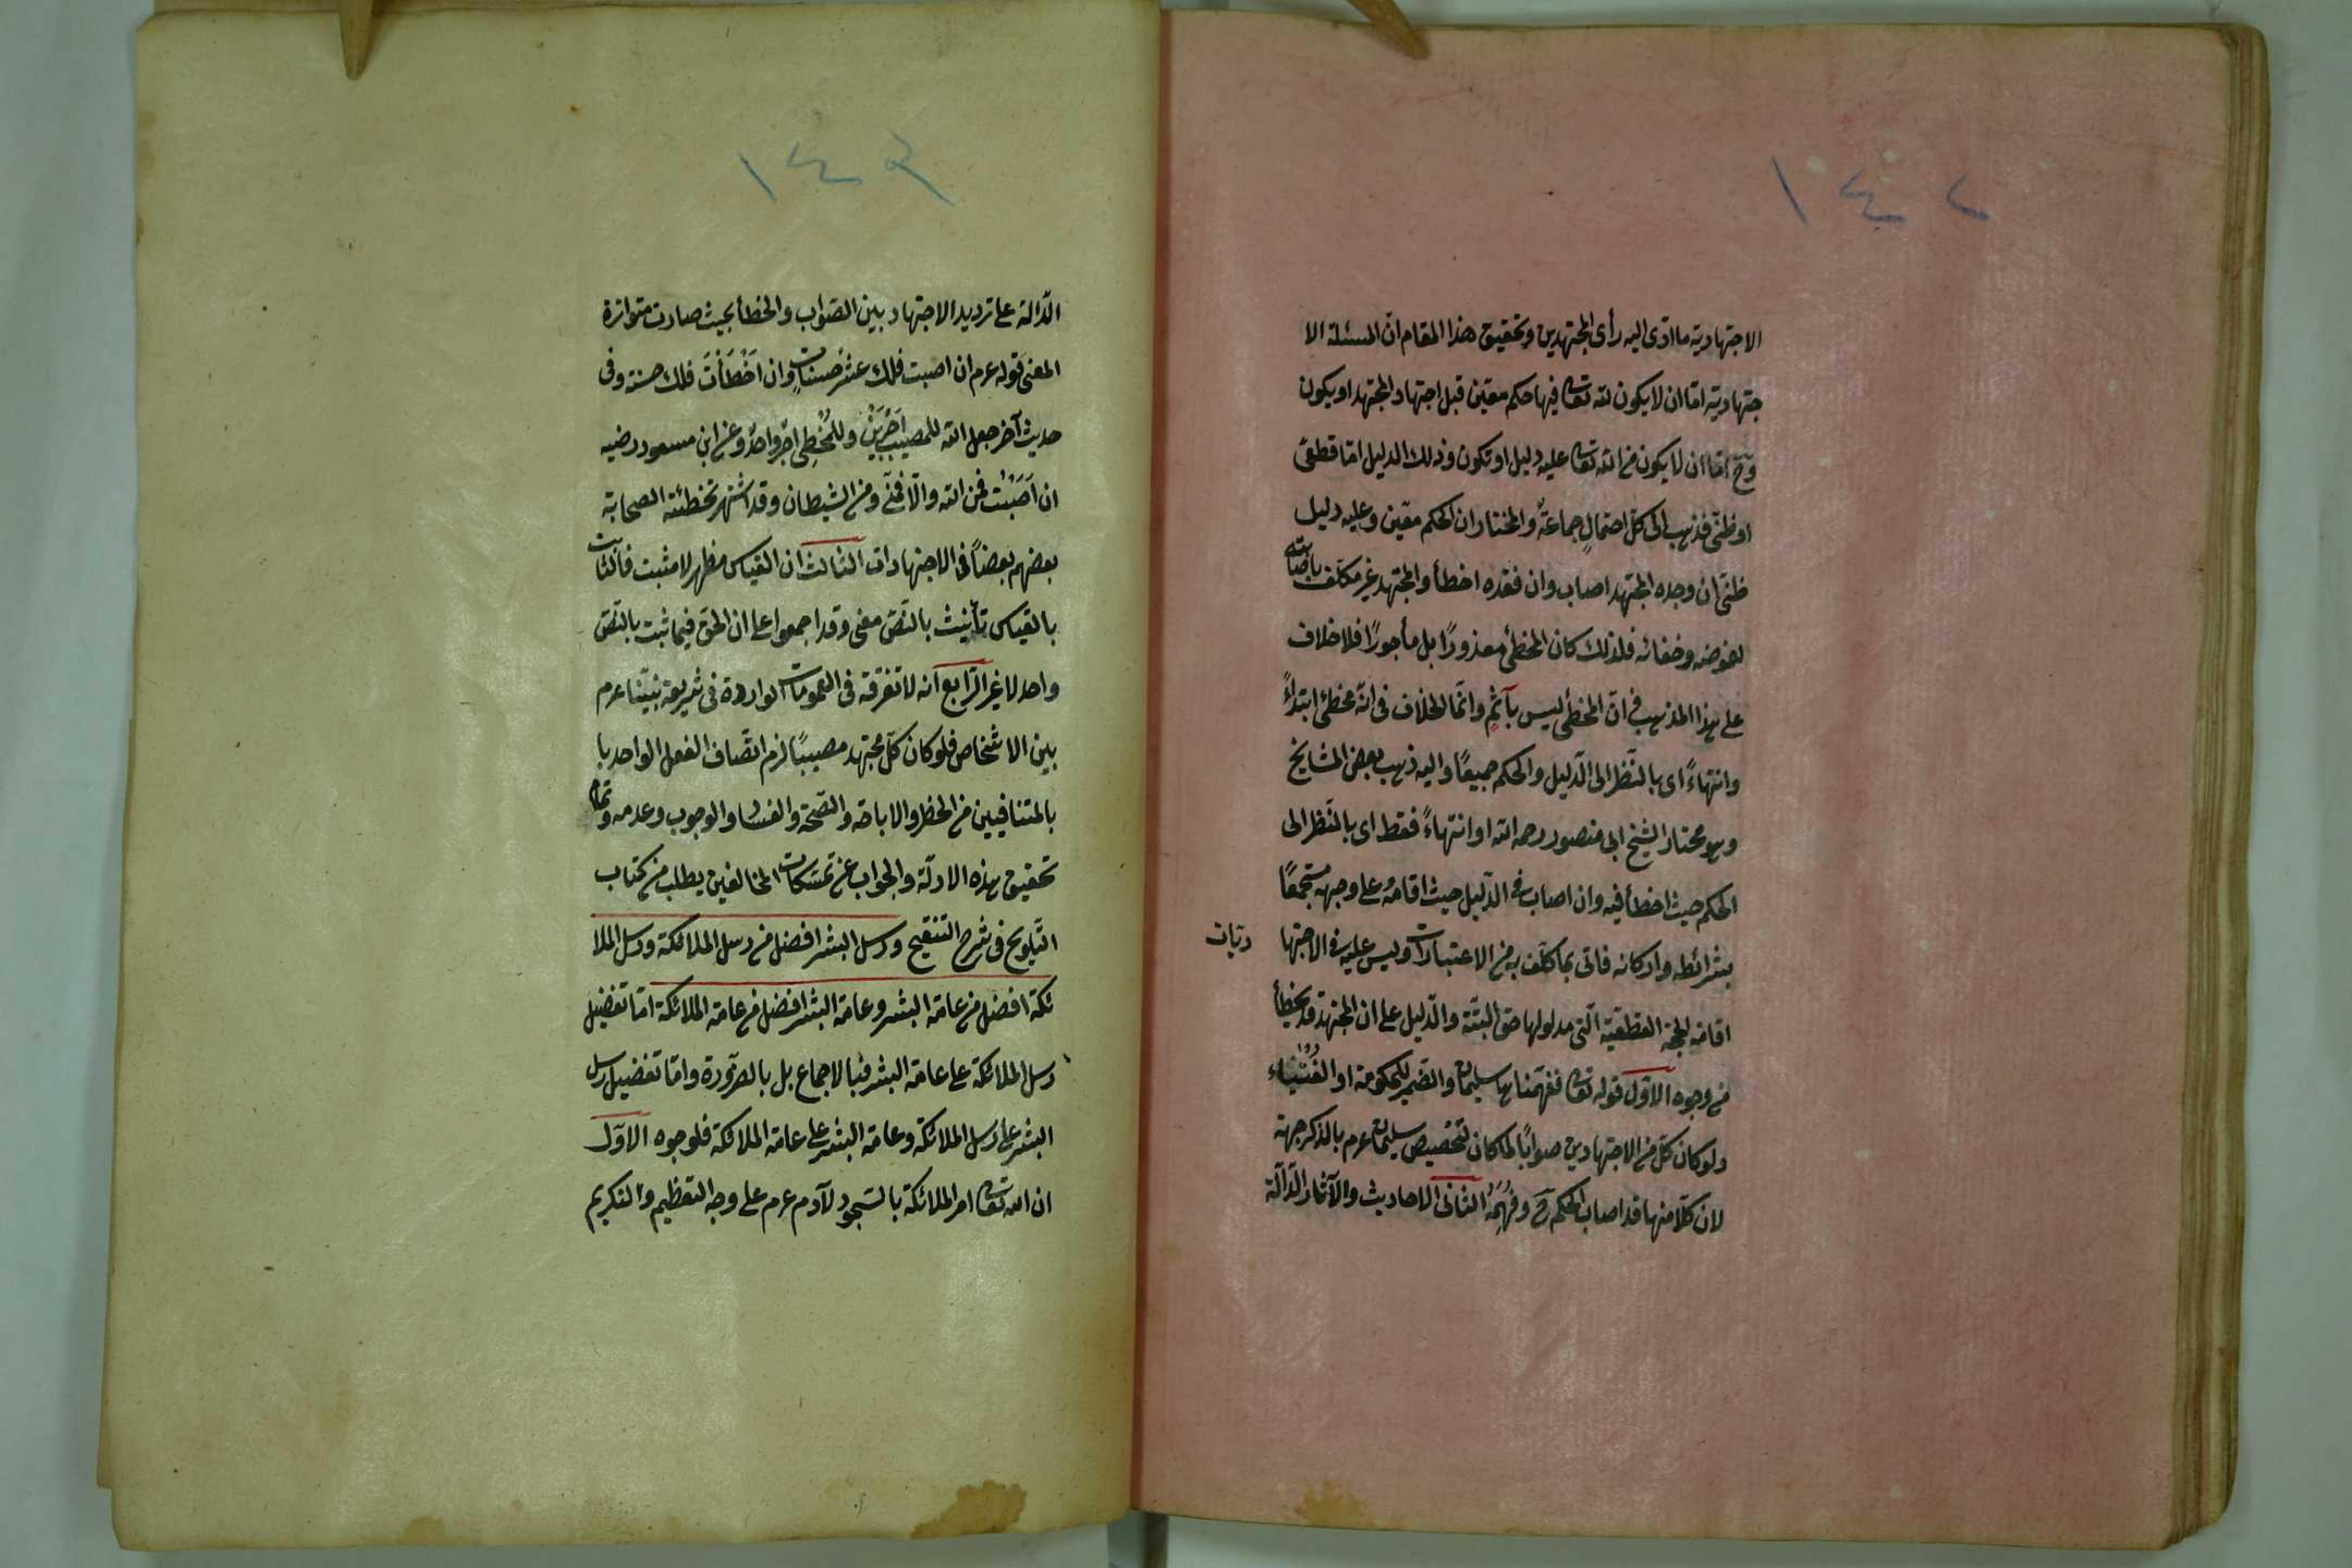 ١٤٢
الاجتهادية ما ادّى اليه رأى المجتهدين وتحقيق هذا المقام انّ المسئلة الا
جتهادية امّا ان لا يكون لله تعا فيها حكم معيّن قبل اجتهاد المجتهد او يكون
وح امّا ان لا يكون من الله تعا عليه دليل او تكون وذلك الدليل امّا قطعىّ
او ظنّى فذهب الى كلّ احتمالٍ جماعةٌ والمختار ان الحكم معيّن وعليه دليل
ظنّى ان وجده المجتهد اصاب وان فقده اخطأ والمجتهد غير مكلّف باصابته
لغموضه وخفائه فلذلك كان المخطئ معذورًا بل مأجورًا فلا خلاف
على هذا المذهب فى انّ المخطئ ليس بآثمٍ وانّما الخلاف فى انّه مخطئ ابتداءً
وانتهاءً اى بالنّظر الى الدّليل والحكم جميعًا واليه ذهب بعض المشايخ
وهو مختار الشيخ ابى منصور رحمه الله او انتهاءً فقط اى بالنّظر الى
الحكم حيث اخطأ فيه وان اصاب فى الدّليل حيث اقامه على وجهه مستجمعًا
بشرائطه واركانه فاتى بما كلّف به من الاعتبارات وليس عليه فى الاجتها
ديات
اقامة الحجّة القطعيّة الّتى مدلولها حق البتّة والدّليل على ان المجتهد قد يخطأ
من وجوه الاوّل قوله تعا ففهّمناها سليمان والضمير للحكومة او الفُتْيَاء
ولو كان كلّ من الاجتهادين صوابًا لما كان لتخصيص سليمان عرم بالذكر جهة
لان كلّا منهما قد اصاب الحكم ح وفَهِمَهُ الثانى الاحاديث والآثار الدّالّة
١٤٣
الدّالة على ترديد الاجتهاد بين الصّواب والخطأ بحيث صارت متواترة
المعنى قوله عرم ان اصبت فلك عشر حسناتٍ وان اَخْطَأْتَ فلك حسنة وفى
حديث آخر جعل الله للمصيب اَجْرَيْنِ وللمُخْطِى اجرٌ واحدٌ وعن ابن مسعود رضيه
ان اَصَبْتُ فمن الله والّا فمنّى ومن الشيطان وقد اشتهر تخطئة الصحابة
بعضهم بعضاً فى الاجتهادات الثالث ان القياس مظهر لا مثبت فالثابت
بالقياس ثابت بالنّصّ معنى وقد اجمعوا على ان الحقّ فيما ثبت بالنّصّ
واحد لا غير الرّابع انه لا تفرقة فى العمومات الواردة فى شريعة نبيّنا عرم
بين الاشخاص فلو كان كلّ مجتهد مصيبًا لزم اتّصاف الفعل الواحد با
بالمتنافيين من الحظر والاباحة والصّحّة والفساد والوجوب وعدمه وتمام
تحقيق هذه الادلّة والجواب عن تمسّكات المخالفين يطلب من كتاب
التلويح فى شرح التنقيح ورسل البشر افضل من رسل الملائكة ورسل الملا
ئكة افضل من عامة البشر وعامة البشر افضل من عامة الملائكة امّا تفضيل
رسل الملائكة على عامة البشر فبالاجماع بل بالضّرورة وامّا تفضيل رسل
البشر على رسل الملائكة وعامة البشر على عامة الملائكة فلوجوه الاوّل
ان الله تعا امر الملائكة بالسّجود لآدم عرم على وجه التعظيم والتكريم